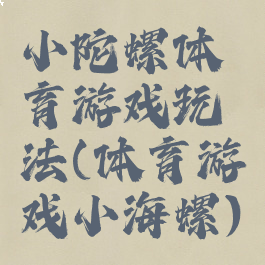 小陀螺体
育游戏玩
法(体育游
戏小海螺)